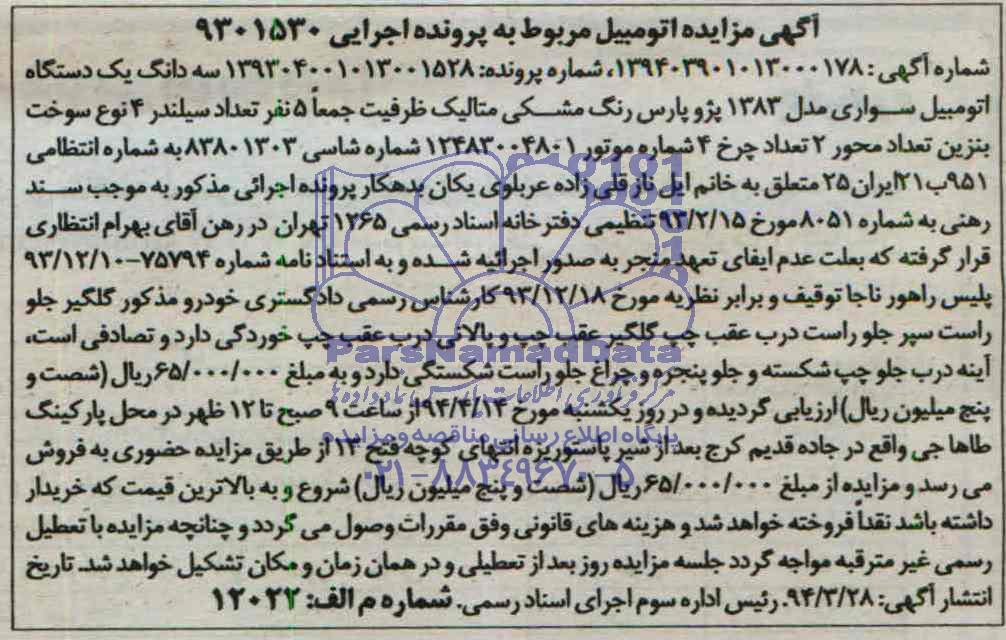 آگهی مزایده اتومبیل مربوط به پرونده اجرایی ۹۳۰۱۵۳۰
شماره آگهی: ۱۳۹۴۰۳۹۰۱۰۱۳۰۰۰۱۷۸، شماره پرونده: ۱۳۹۳۰۴۰۰۱۰۱۳۰۰۱۵۲۸ سه دانگ یک دستگاه
اتومبیل سواری مدل ۱۳۸۳ پژو پارس رنگ مشکی متالیک ظرفیت جمعاً ۵ نفر تعداد سیلندر ۴ نوع سوخت
بنزین تعداد محور ۲ تعداد چرخ ۴ شماره موتور ۱۲۴۸۳۰۰۴۸۰۱ شماره شاسی ۸۳۸۰۱۳۰۳ به شماره انتظامی
۹۵۱ب۲۱ایران۲۵ متعلق به خانم ایل ناز قلی زاده عربلوی یکان بدهکار پرونده اجرائی مذکور به موجب سند
رهنی به شماره ۸۰۵۱ مورخ ۹۳/۲/۱۵ تنظیمی دفترخانه اسناد رسمی ۱۲۶۵ تهران در رهن آقای بهرام انتظاری
قرار گرفته که بعلت عدم ایفای تعهد منجر به صدور اجرائیه شده و به استناد نامه شماره ۷۵۷۹۴-۹۳/۱۲/۱۰
پلیس راهور ناجا توقیف و برابر نظریه مورخ ۹۳/۱۲/۱۸ کارشناس رسمی دادگستری خودرو مذکور گلگیر جلو
راست سپر جلو راست درب عقب چپ گلگیر عقب چپ و پالانی درب عقب چپ خوردگی دارد و تصادفی است،
آینه درب جلو چپ شکسته و جلو پنجره و چراغ جلو راست شکستگی دارد و به مبلغ ۶۵/۰۰۰/۰۰۰ریال (شصت و
پنج میلیون ریال) ارزیابی گردیده و در روز یکشنبه مورخ ۹۴/۴/۱۴ از ساعت ۹ صبح تا ۱۲ ظهر در محل پارکینگ
طاها جی واقع در جاده قدیم کرج بعد از شیر پاستوریزه انتهای کوچه فتح ۱۳ از طریق مزایده حضوری به فروش
می رسد و مزایده از مبلغ ۶۵/۰۰۰/۰۰۰ریال (شصت و پنج میلیون ریال) شروع و به بالاترین قیمت که خریدار
داشته باشد نقداً فروخته خواهد شد و هزینه های قانونی وفق مقررات وصول می گردد و چنانچه مزایده با تعطیل
رسمی غیر مترقبه مواجه گردد جلسه مزایده روز بعد از تعطیلی و در همان زمان و مکان تشکیل خواهد شد. تاریخ
انتشار آگهی: ۹۴/۳/۲۸. رئیس اداره سوم اجرای اسناد رسمی. شماره م الف: ۱۲۰۲۲
ParsNamadData
مرکز فرآوری اطلاعات پارس نماد داده ها
پایگاه اطلاع رسانی مناقصه و مزایده
۰۲۱-۸۸۳۴۹۶۷۰-۵